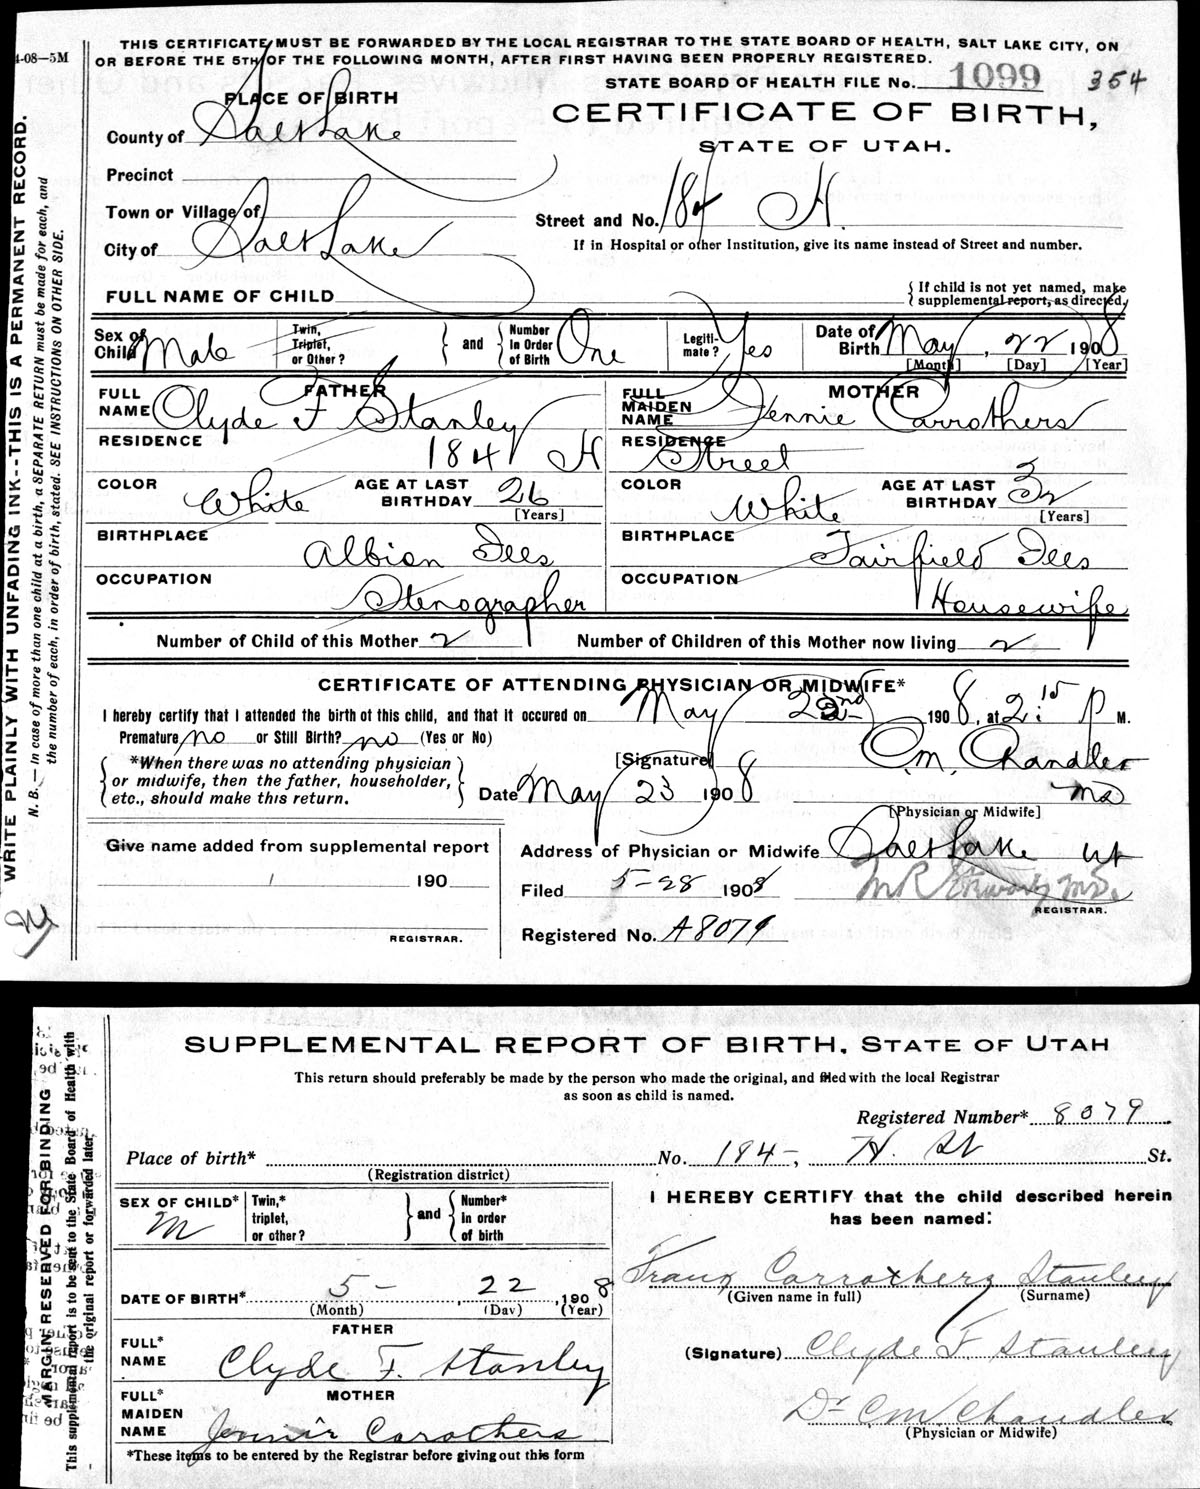 4-08—5M
THIS CERTIFICATE MUST BE FORWARDED BY THE LOCAL REGISTRAR TO THE STATE BOARD OF HEALTH, SALT LAKE CITY, ON
OR BEFORE THE 5TH OF THE FOLLOWING MONTH, AFTER FIRST HAVING BEEN PROPERLY REGISTERED.
STATE BOARD OF HEALTH FILE No. 1099 354
PLACE OF BIRTH
CERTIFICATE OF BIRTH,
STATE OF UTAH.
County of Salt Lake
Precinct
Town or Village of
Street and No. 184 H.
City of Salt Lake
If in Hospital or other Institution, give its name instead of Street and number.
FULL NAME OF CHILD
{ If child is not yet named, make
supplemental report, as directed.
Sex of Child Male
Twin, Triplet, or Other?
and
Number in Order of Birth One
Legiti- mate? Yes
Date of Birth May, 22 1908
[Month] [Day] [Year]
FATHER
FULL NAME Clyde F Stanley
RESIDENCE 184 H
COLOR White
AGE AT LAST BIRTHDAY 26
[Years]
BIRTHPLACE Albion Ills
OCCUPATION Stenographer
MOTHER
FULL MAIDEN NAME Jennie Carrothers
RESIDENCE Street
COLOR White
AGE AT LAST BIRTHDAY 32
[Years]
BIRTHPLACE Fairfield Ills
OCCUPATION Housewife
Number of Child of this Mother 2 Number of Children of this Mother now living 2
CERTIFICATE OF ATTENDING PHYSICIAN OR MIDWIFE*
I hereby certify that I attended the birth of this child, and that it occured on May 22nd 1908, at 2: P M.
Premature no or Still Birth? no (Yes or No)
*When there was no attending physician
or midwife, then the father, householder,
etc., should make this return.
[Signature] C.M. Chandler
Date May 23 1908 MD
[Physician or Midwife]
Give name added from supplemental report
190
REGISTRAR.
Address of Physician or Midwife Salt Lake Ut
Filed 5-28 1908
REGISTRAR.
Registered No. A8079
WRITE PLAINLY WITH UNFADING INK--THIS IS A PERMANENT RECORD.
N. B.—In case of more than one child at a birth, a SEPARATE RETURN must be made for each, and
the number of each, in order of birth, stated. SEE INSTRUCTIONS ON OTHER SIDE.
SUPPLEMENTAL REPORT OF BIRTH, STATE OF UTAH
This return should preferably be made by the person who made the original, and filed with the local Registrar
as soon as child is named.
Registered Number* 8079
Place of birth* No. 184-, H. St St.
(Registration district)
SEX OF CHILD* M
Twin,* triplet, or other?
and
Number* in order of birth
DATE OF BIRTH* 5- , 22 , 1908
(Month) (Day) (Year)
FATHER
FULL* NAME Clyde F. Stanley
MOTHER
FULL* MAIDEN NAME Jennie Carothers
*These items to be entered by the Registrar before giving out this form
I HEREBY CERTIFY that the child described herein
has been named:
Franz Carrothers Stanley
(Given name in full) (Surname)
(Signature) Clyde F. Stanley
Dr CM. Chandler
(Physician or Midwife)
MARGIN RESERVED FOR BINDING
This supplemental report is to be sent to the State Board of Health with
the original report or forwarded later.